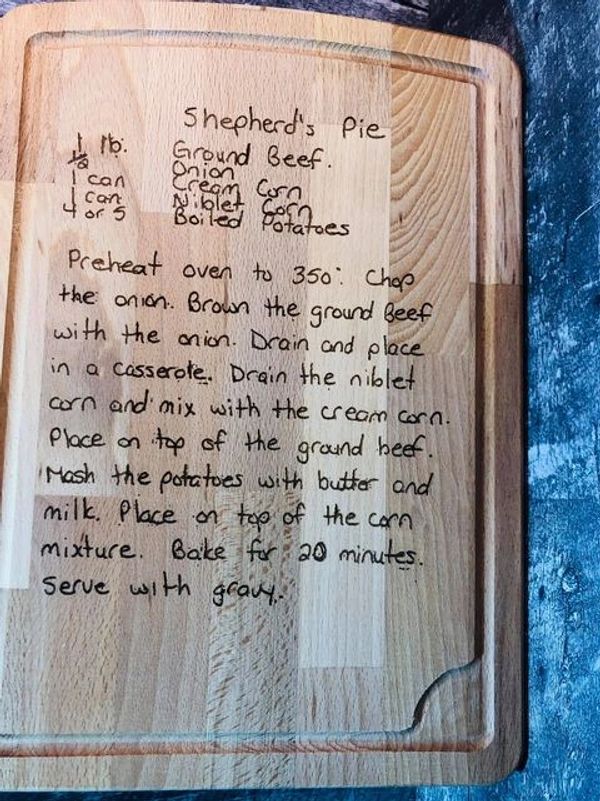 Shepherd's Pie
1 lb. Ground Beef.
1/2 Onion
1 can Cream Corn
1 can Niblet Corn
4 or 5 Boiled Potatoes
Preheat oven to 350°. Chop
the onion. Brown the ground Beef
with the onion. Drain and place
in a casserole. Drain the niblet
corn and mix with the cream corn.
Place on top of the ground beef.
Mash the potatoes with butter and
milk. Place on top of the corn
mixture. Bake for 20 minutes.
Serve with gravy.